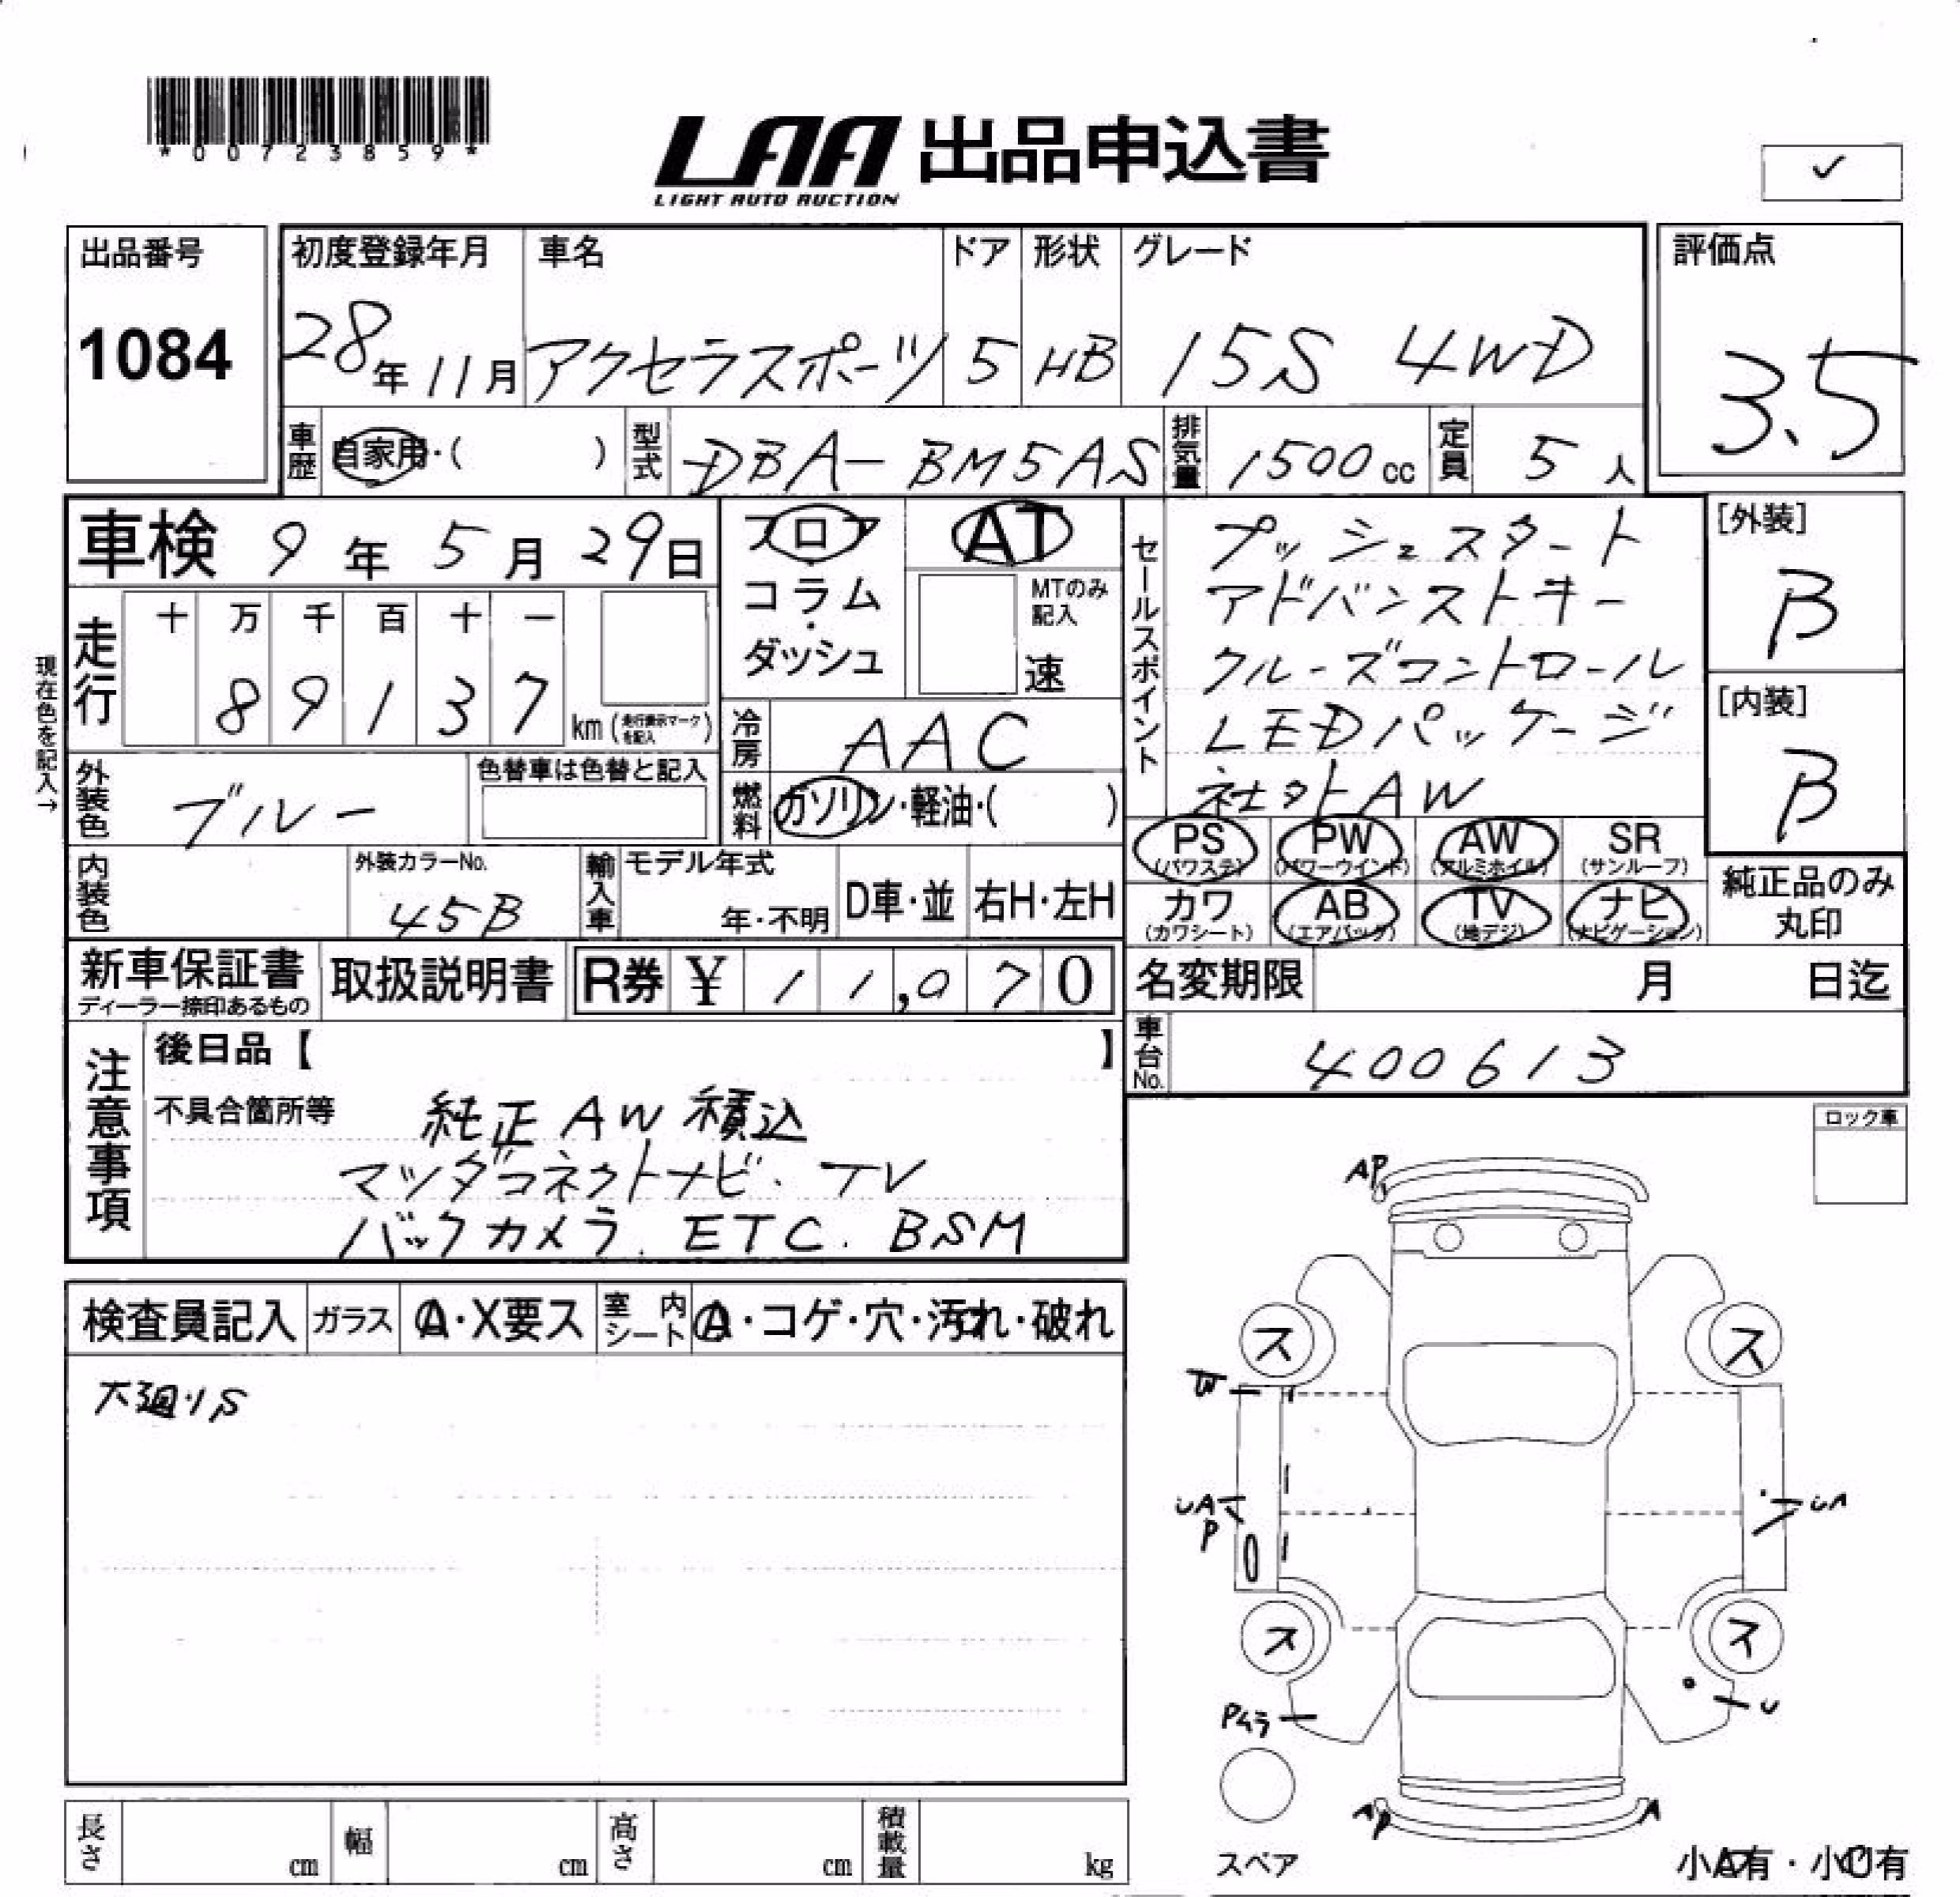 *00723859*
LAA 出品申込書
LIGHT AUTO AUCTION
出品番号
1084
初度登録年月
28年11月
車名
アクセラスポーツ
ドア
5
形状
HB
グレード
15S 4WD
評価点
3.5
車歴 自家用・( )
型式 DBA-BM5AS
排気量 1500cc
定員 5人
車検 9年5月29日
現在色を記入→
走行 十 万 千 百 十 一
8 9 1 3 7 km (走行表示マークを記入)
フロア
コラム・
ダッシュ
AT
MTのみ記入
速
冷房 AAC
燃料 ガソリン・軽油・( )
外装色 ブルー
色替車は色替と記入
内装色
外装カラーNo.
45B
輸入車
モデル年式
年・不明
D車・並
右H・左H
セールスポイント
プッシュスタート
アドバンストキー
クルーズコントロール
LEDパッケージ
社外AW
[外装]
B
[内装]
B
PS (パワステ)
PW (パワーウインド)
AW (アルミホイル)
SR (サンルーフ)
カワ (カワシート)
AB (エアバック)
TV (地デジ)
ナビ (ナビゲーション)
純正品のみ
丸印
新車保証書
ディーラー捺印あるもの
取扱説明書
R券 ¥ 11,070
名変期限 月 日迄
車台No. 400613
注意事項
後日品【 】
不具合箇所等
純正AW積込
マツダコネクトナビ. TV
バックカメラ. ETC. BSM
ロック車
検査員記入
ガラス A・X要ス
室内シート A・コゲ・穴・汚れ・破れ
大廻りS
AP
ス ス
W
UA
P
UA
ス ス
Pムラ
U
スペア
AP
A
小A有・小U有
長さ cm
幅 cm
高さ cm
積載量 kg